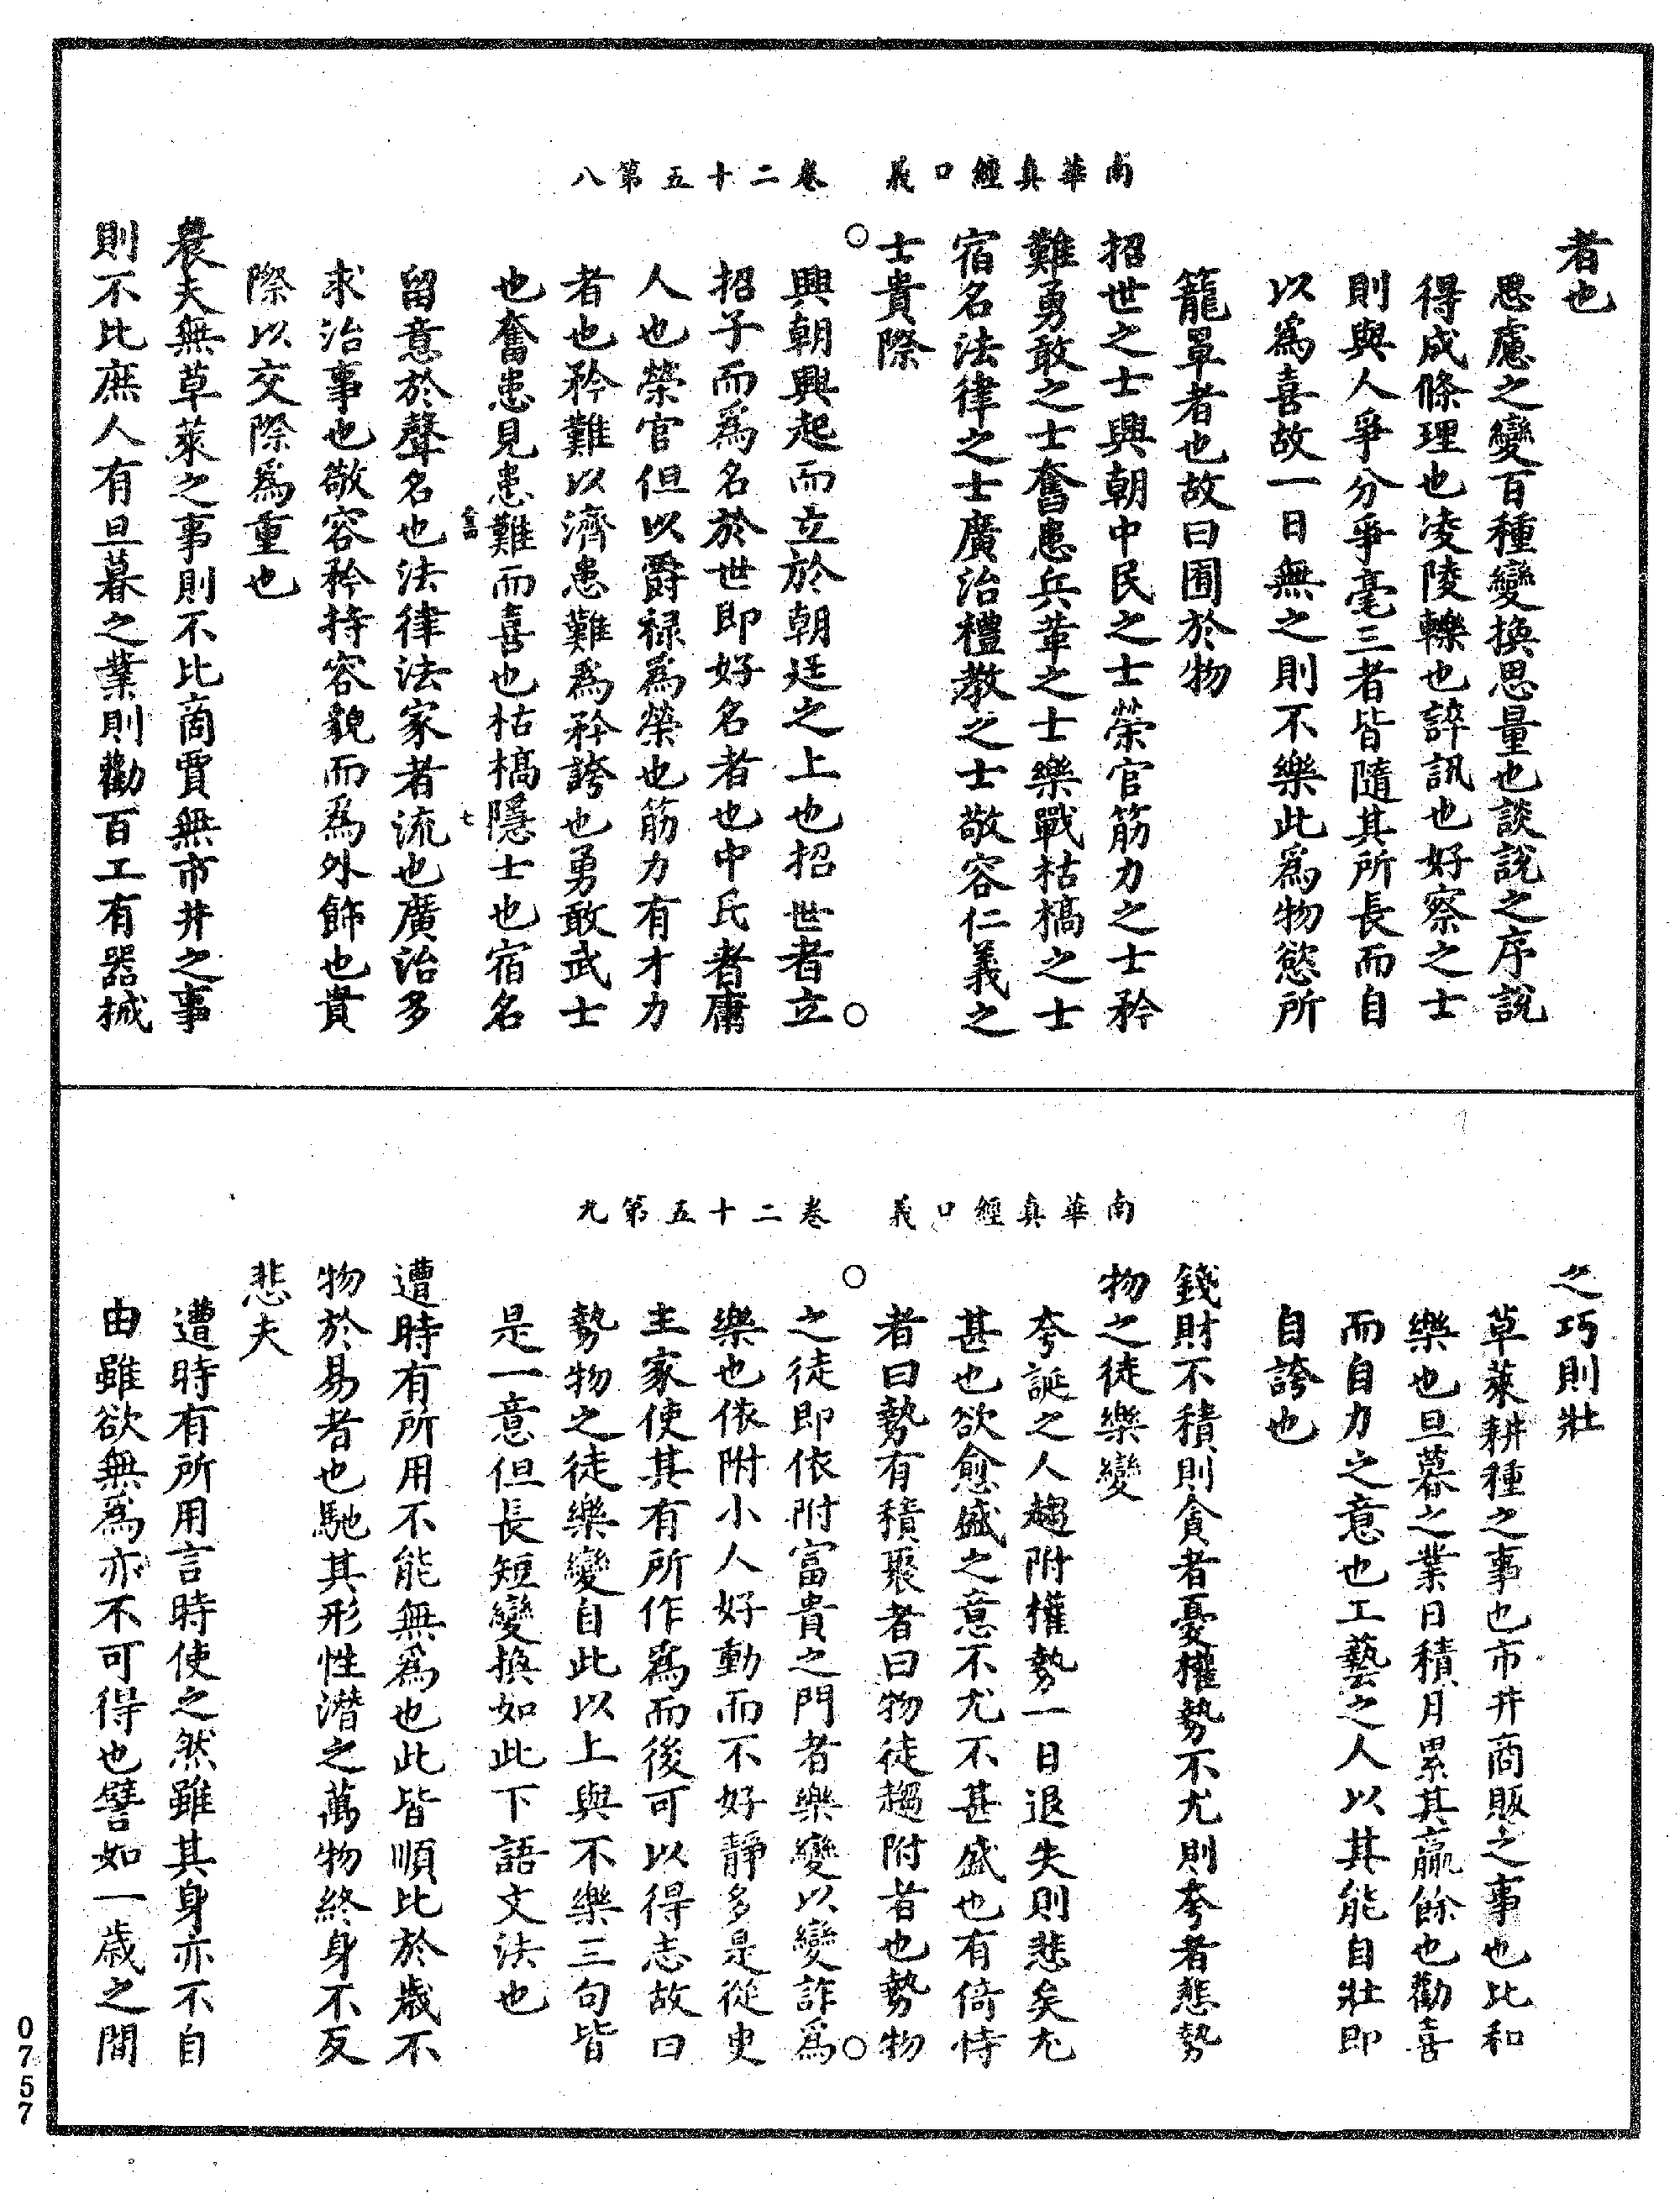 南華真經口義　卷二十五第八
者也
思慮之變百種變換思量也談說之序說
得成條理也凌陵轢也誶訊也好察之士
則與人爭分爭毫三者皆隨其所長而自
以為喜故一日無之則不樂此為物慾所
籠罩者也故曰囿於物
招世之士興朝中民之士榮官筋力之士矜
難勇敢之士奮患兵革之士樂戰枯槁之士
宿名法律之士廣治禮教之士敬容仁義之
士貴際
興朝興起而立於朝廷之上也招世者立
招子而為名於世即好名者也中民者庸
人也榮官但以爵祿為榮也筋力有才力
者也矜難以濟患難為矜誇也勇敢武士
也奮患見患難而喜也枯槁隱士也宿名
留意於聲名也法律法家者流也廣治多
求治事也敬容矜持容貌而為外飾也貴
際以交際為重也
農夫無草萊之事則不比商賈無市井之事
則不比庶人有旦暮之業則勸百工有器械
南華真經口義　卷二十五第九
之巧則壯
草萊耕種之事也市井商販之事也比和
樂也旦暮之業日積月累其贏餘也勸喜
而自力之意也工藝之人以其能自壯即
自誇也
錢財不積則貪者憂權勢不尤則夸者悲勢
物之徒樂變
夸誕之人趨附權勢一日退失則悲矣尤
甚也欲愈盛之意不尤不甚盛也有倚恃
者曰勢有積聚者曰物徒趨附者也勢物
之徒即依附富貴之門者樂變以變詐為
樂也依附小人好動而不好靜多是從臾
主家使其有所作為而後可以得志故曰
勢物之徒樂變自此以上與不樂三句皆
是一意但長短變換如此下語文法也
遭時有所用不能無為也此皆順比於歲不
物於易者也馳其形性潛之萬物終身不反
悲夫
遭時有所用言時使之然雖其身亦不自
由雖欲無為亦不可得也譬如一歲之間
0757